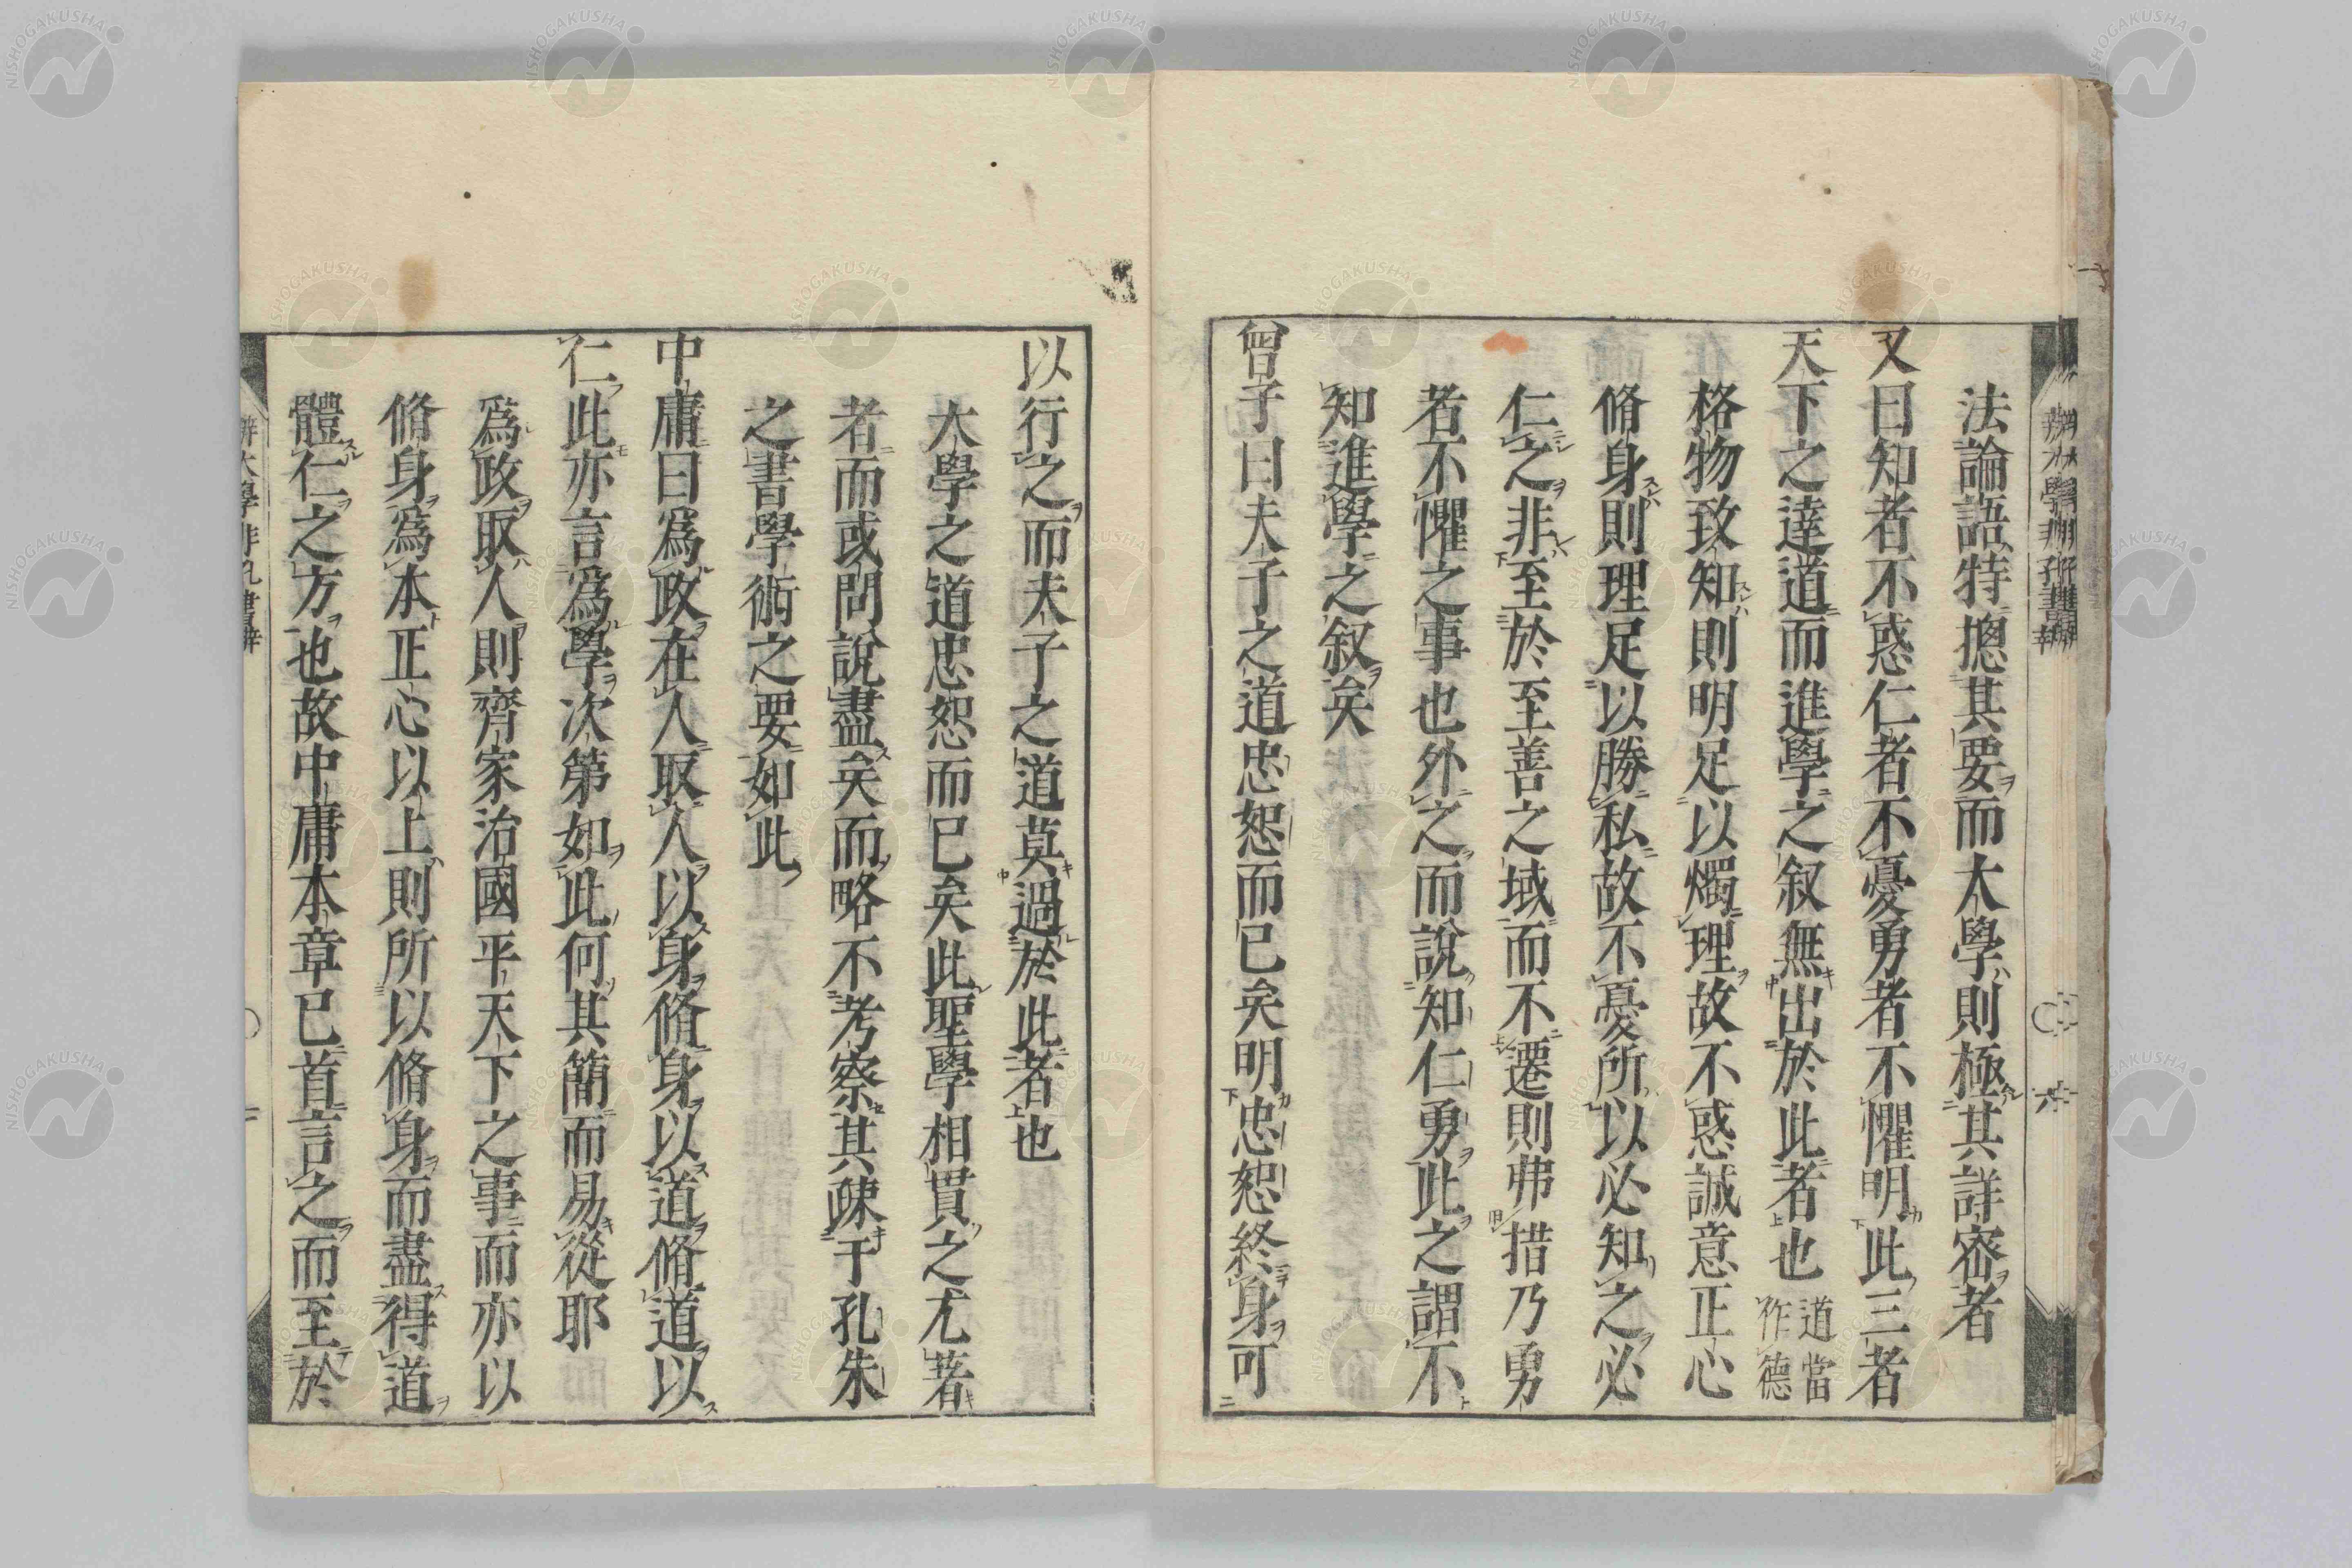 法論語特揔其要而大學則極其詳密者
又曰知者不惑仁者不憂勇者不懼明此三者
天下之達道而進學之叙無出於此者也道當作德
格物致知則明足以燭理故不惑誠意正心
脩身則理足以勝私故不憂所以必知之必
仁之非至於至善之域而不遷則弗措乃勇
者不懼之事也外之而說知仁勇此之謂不
知進學之叙矣
曾子曰夫子之道忠恕而已矣明忠恕終身可
以行之而夫子之道莫過於此者也
大學之道忠恕而已矣此聖學相貫之尤著
者而或問說盡矣而略不考察其疎于孔朱
之書學術之要如此
中庸曰爲政在人取人以身脩身以道脩道以
仁此亦言爲學次第如此何其簡而易從耶
爲政取人則齊家治國平天下之事而亦以
脩身爲本正心以上則所以脩身而盡得道
體仁之方也故中庸本章已首言之而至於
NISHOGAKUSHA